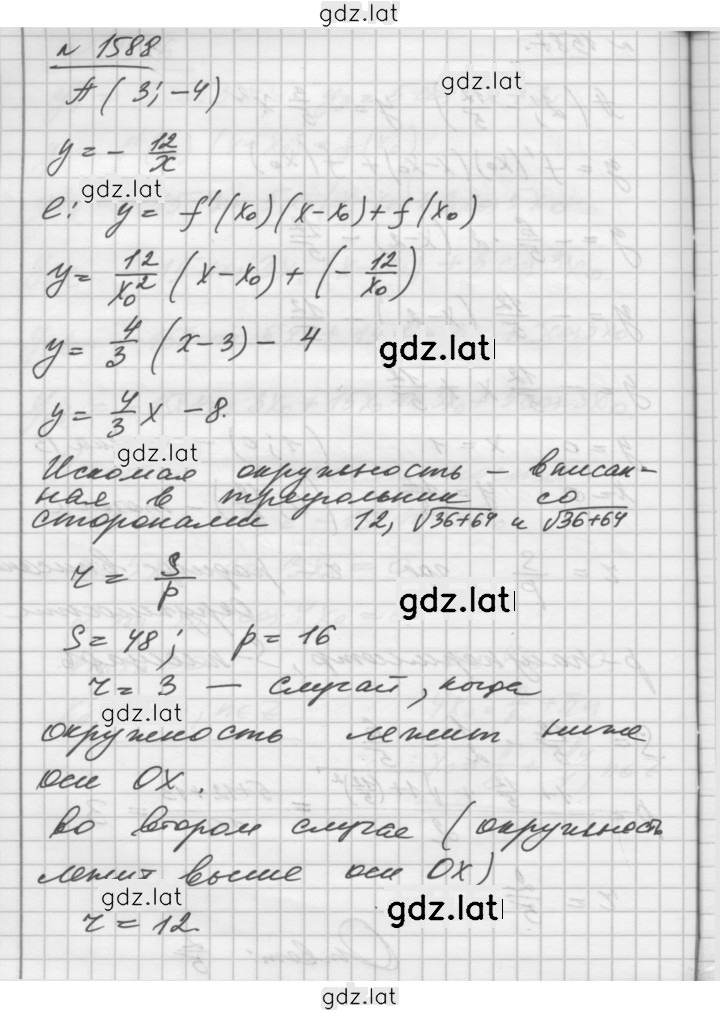 gdz.lat
№ 1588
A ( 3; -4)
gdz.lat
y = - 12/x
gdz.lat
l: y = f'(x₀)(x-x₀)+f(x₀)
y = 12/x₀² (x-x₀)+(-12/x₀)
y = 4/3 (x-3) - 4
gdz.lat
y = 4/3 x - 8.
gdz.lat
Искомая окружность - вписан-
ная в треугольник со
сторонами 12, √36+64 и √36+64
r = S/p
gdz.lat
S = 48; p = 16
r = 3 - случай, когда
gdz.lat
окружность лежит ниже
оси OX.
Во втором случае (окружность
лежит выше оси OX)
gdz.lat
gdz.lat
r = 12.
gdz.lat